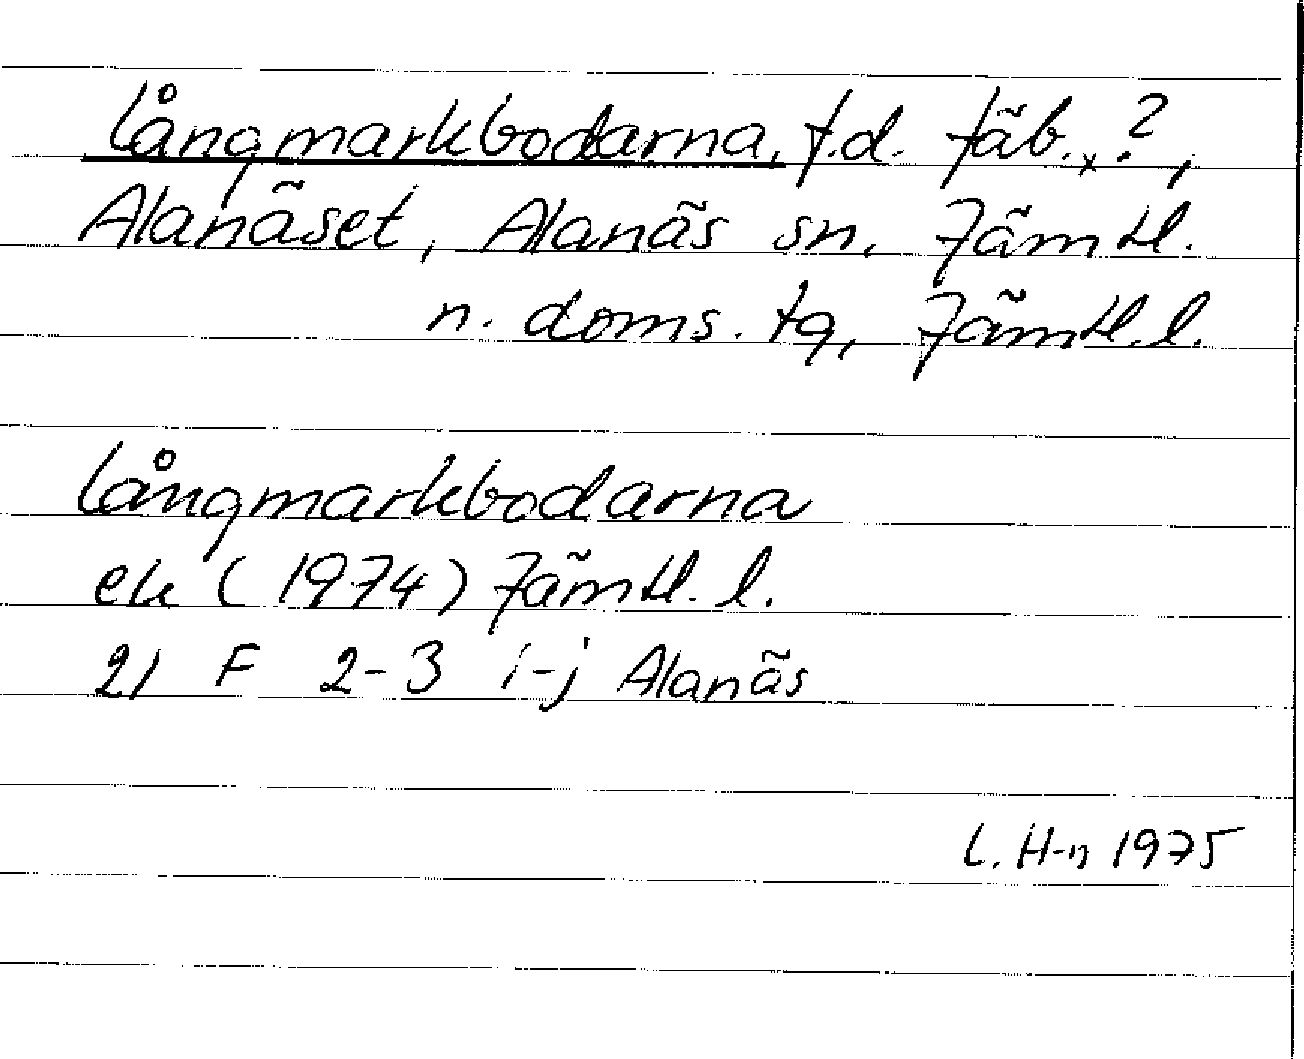 Långmarkbodarna, f.d. fäb.x ?,
Alanäset, Alanäs sn, Jämtl.
n. doms. tg, Jämtl. l.
Långmarkbodarna
ek (1974) Jämtl. l.
21 F 2-3 i-j Alanäs
L. H-n 1975